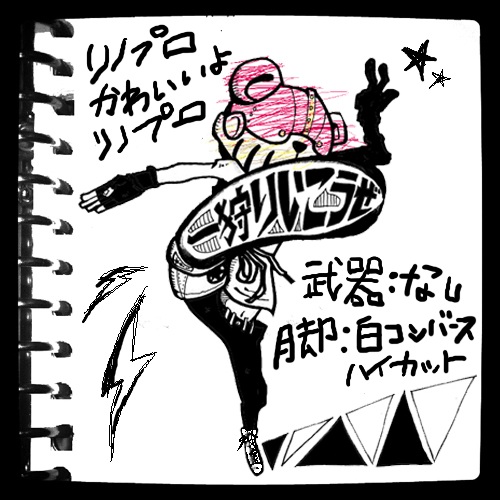 リノプロ
かわいいよ
リノプロ
一狩りいこうぜ
武器:なし
脚:白コンバース
ハイカット